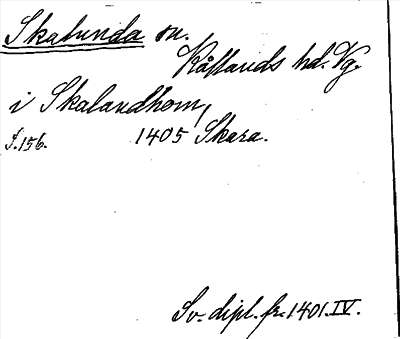 Skalunda sn.
Kållands hd. Vg.
i Skalandhom,
s. 156. 1405 Skara.
Sv. dipl. fr. 1401. IV.